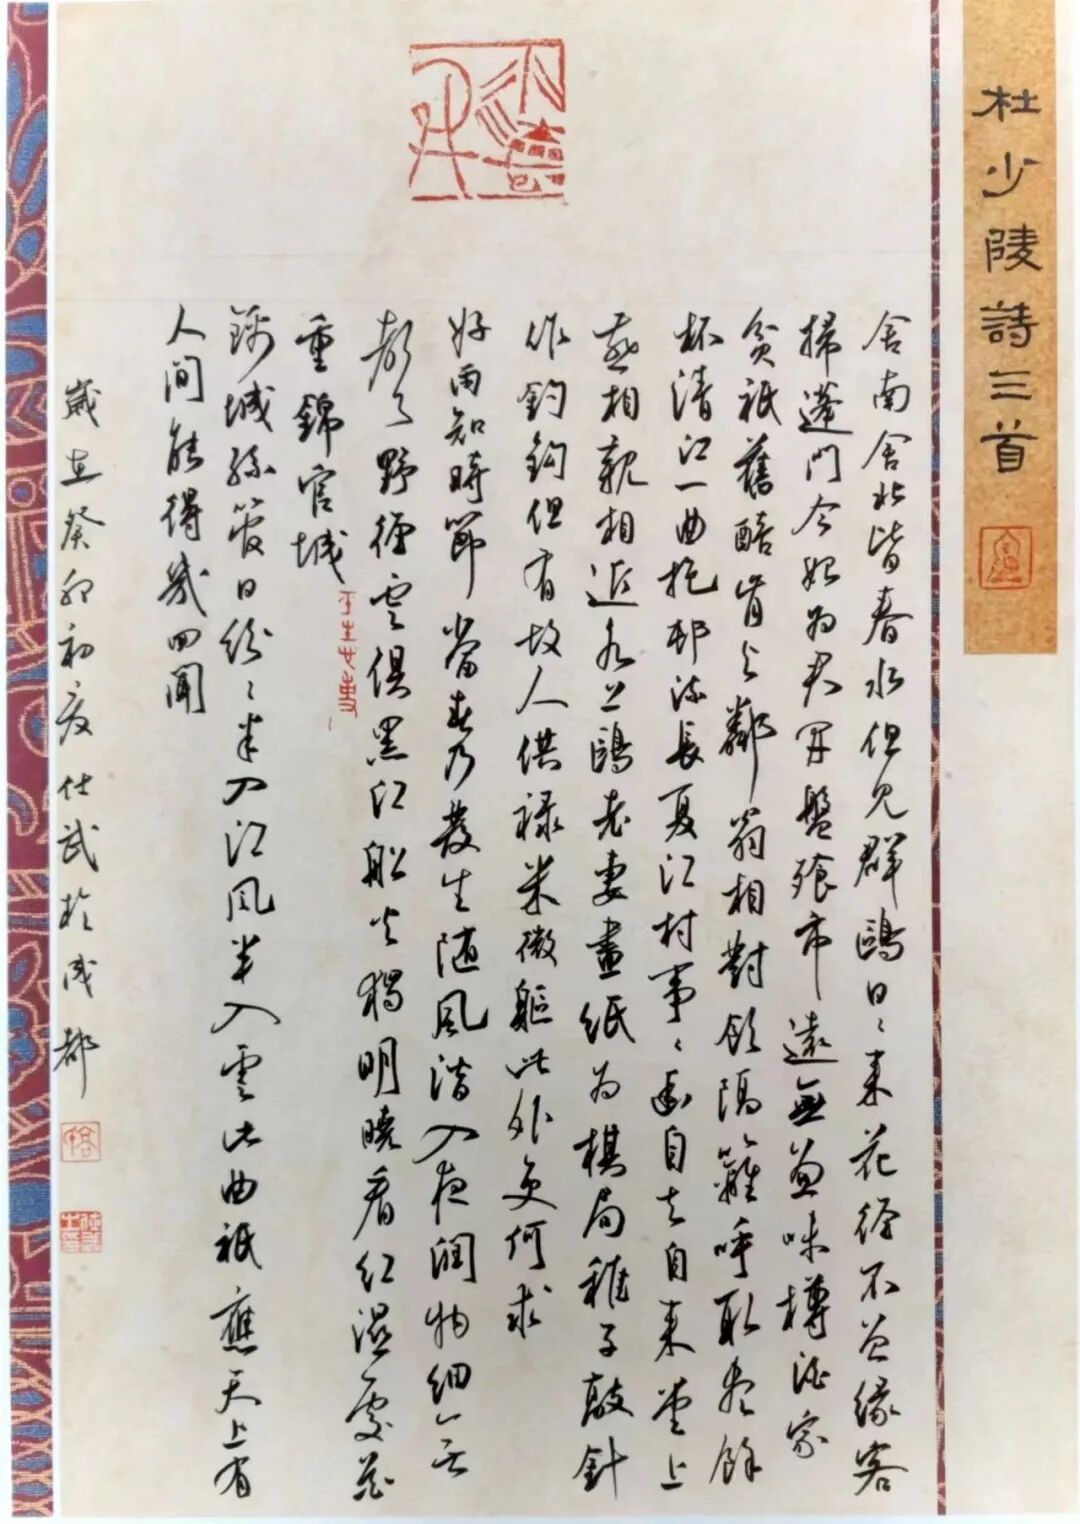 杜少陵詩三首
舍南舍北皆春水但見群鷗日〻来花徑不曾緣客
掃蓬門今始為君開盤飧市遠無兼味樽酒家
貧祇舊醅肯與鄰翁相對飲隔籬呼取盡餘
杯清江一曲抱邨流長夏江村事〻幽自去自来堂上
燕相親相近水中鷗老妻畫紙為棋局稚子敲針
作釣鈎但有故人供禄米微軀此外更何求
好雨知時節當春乃發生随風潛入夜潤物細無
聲野徑雲俱黑江船火獨明曉看紅濕處花
重錦官城
錦城絲管日紛〻半入江風半入雲此曲祇應天上有
人间能得幾回聞
歲在癸卯初夏仕武於成都